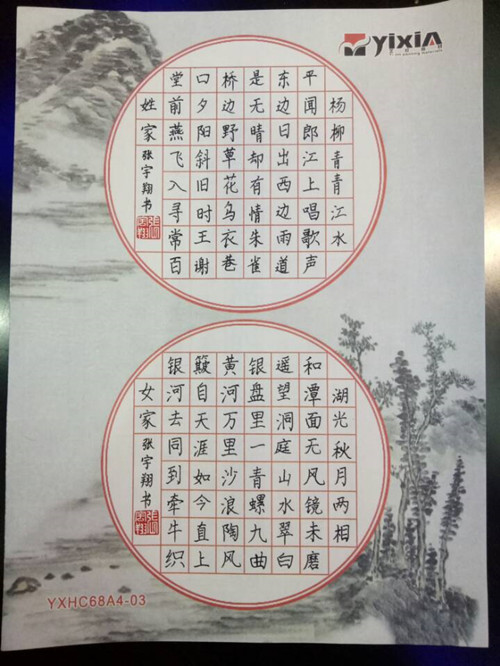 yixiA
杨柳青青江水
平闻郎江上唱歌声
东边日出西边雨道
是无晴却有情朱雀
桥边野草花乌衣巷
口夕阳斜旧时王谢
堂前燕飞入寻常百
姓家 张宇翔书
湖光秋月两相
和潭面无风镜未磨
遥望洞庭山水翠白
银盘里一青螺九曲
黄河万里沙浪陶风
簸自天涯如今直上
银河去同到牵牛织
女家 张宇翔书
YXHC68A4-03